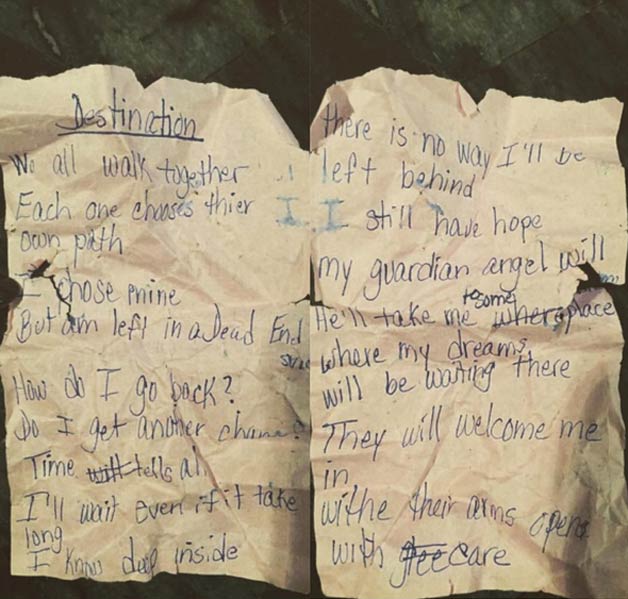 Destination
We all walk together
Each one chooses thier
own path
I chose mine
But am left in a Dead End
How do I go back?
Do I get another chance?
Time will tells all
I'll wait even if it take
long
I know deep inside
there is no way I'll be
left behind
I I still have hope
my guardian angel will
He'll take me to some where place
where my dreams
will be waiting there
They will welcome me
in
withe their arms opens
with care